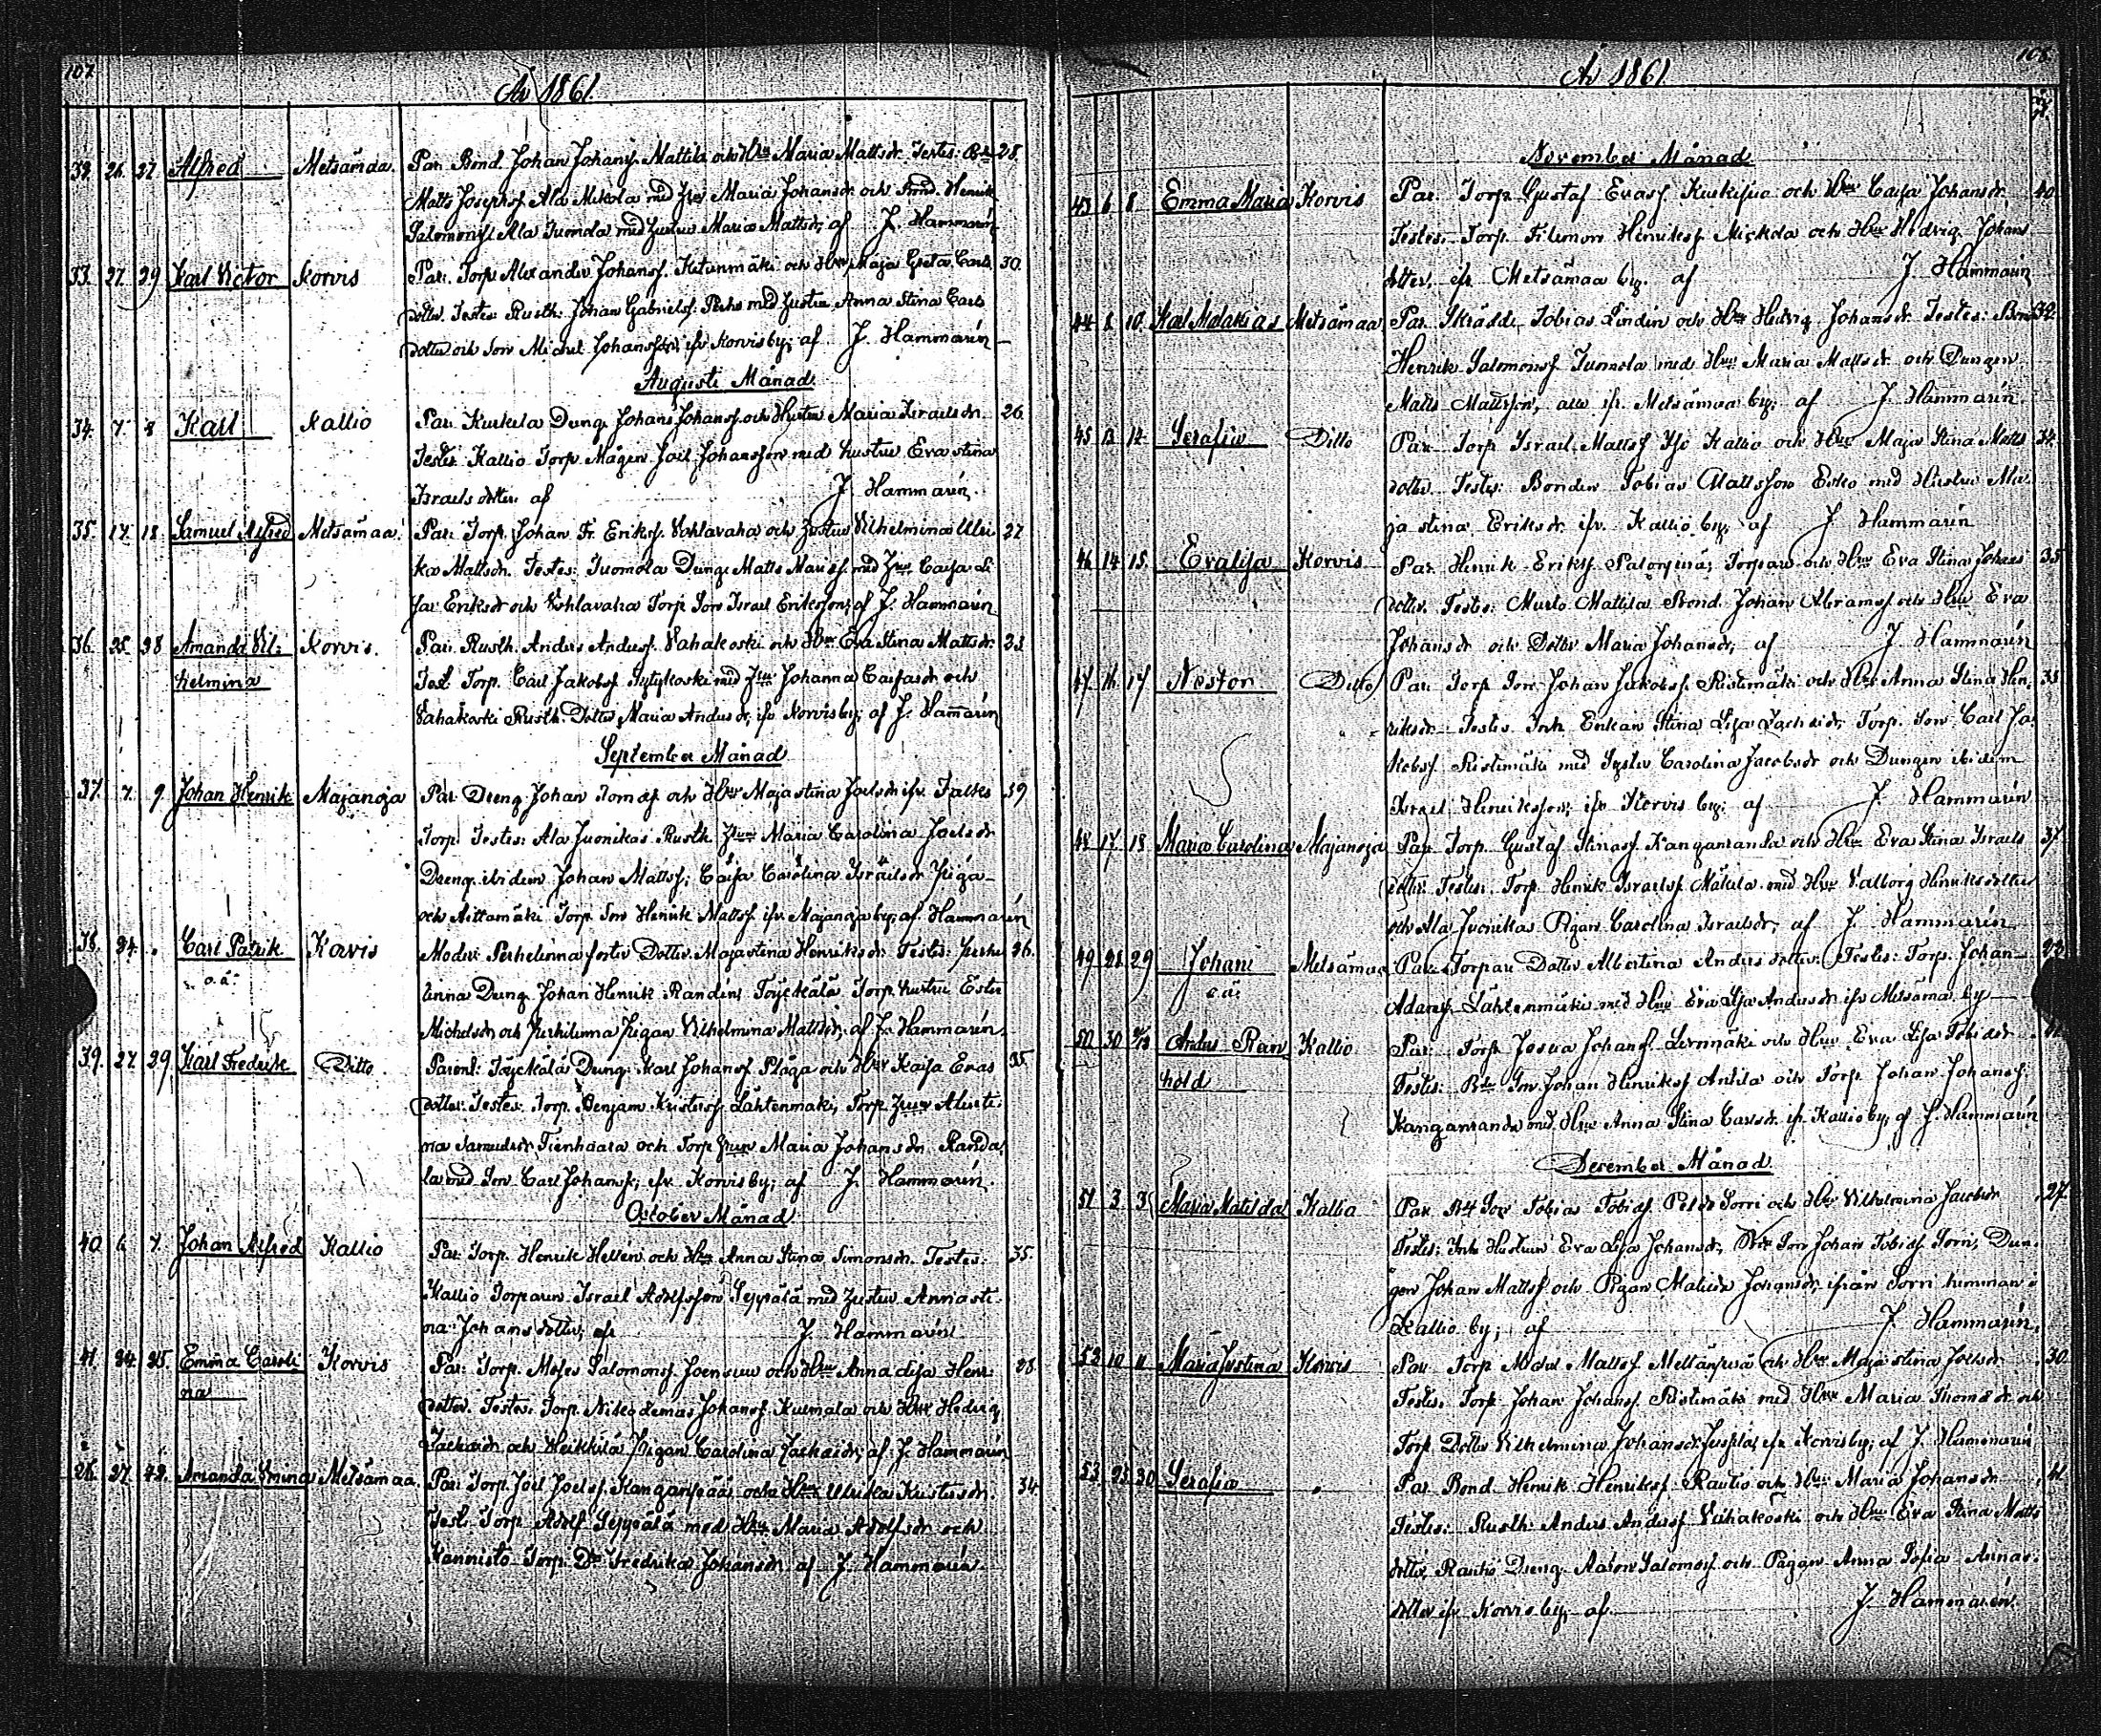 107.
År 1861.
32. 26. 27. Alfred Metsämaa. Par. Bond. Johan Johansf. Mattila och Hru Maria Mattsdr. Testes: 28.
Matts Josephsf. Ala Mikola med Hru Maria Johansdr och Bond. Henrik
Salomonsf. Ala Tuomola med Hustru Maria Mattsdr; af J. Hammarén
33. 27. 29 Karl Victor Korvis Par. Torp. Alexander Johansf. Ketunmäki och Hru Maja Greta Carls 30.
dotter. Testes: Rusth. Johan Gabrielsf. Perho med Hustru Anna Stina Carls
dotter och Son Michel Johansson; ifr Korvis by; af J. Hammarén
Augusti Månad
34. 7. 8 Karl Kallio Par. Kurkela Dreng. Johan Johansf. och Hustru Maria Israelsdr. 26
Testes. Kallio Torp. Mågen Joel Johansson med hustru Eva Stina
Israelsdotter. af J. Hammarén.
35. 17. 18 Samuel Alfred Metsämaa. Par. Torp. Johan Fr. Eriksf. Vohlavaha och Hustru Vilhelmina Ulri 27
ka Mattsdr. Testes: Tuomola Dreng. Matts Mariasf. med Hru Caisa Li
sa Eriksdr och Vohlavaha Torp. Son Israel Eriksson; af J. Hammarén
36. 25. 28 Amanda Vil: Korvis. Par. Rusth. Anders Andersf. Vahakoski och Hru Eva Stina Mattsdr. 23
helmina Test. Torp. Carl Jakobsf. Sytykoski med Hru Johanna Caisasdr och
Vahakoski Rusth. Dotter Maria Andersdr, ifr Korvis by; af J. Hammarén
September Månad
37. 7. 9. Johan Henrik Majanoja Par. Dreng. Johan Tomasf. och Hru Maja Stina Joelsdr ifr. Falkes 39
Torp. Testes: Ala Juonikas Rusth. Hru Maria Carolina Joelsdr
Dreng. ibidem Johan Mattsf; Caisa Carolina Israelsdr Piga
och Aittamäki Torp. Son Henrik Mattsf. ifr Majanoja by; af Hammarén
38. 24. „ Carl Patrik Korvis Moder. Perhelinna foster Dotter Majastina Henriksdr. Testes: Perhe 26.
o. ä. linna Dreng. Johan Henrik Randen; Töyckälä Torp. hustru Ester
Michelsdr och Perhilinna Pigan Vilhelmina Mattsdr, af J. Hammarén
39. 27. 29. Karl Fredrik Ditto Parent: Töyckälä Dreng. Karl Johansf. Plåga och Hru Kaisa Evas 35.
dotter. Testes: Torp. Benjam. Kustersf. Lähtenmäki, Torp. Hru Alberti:
na Samuelsdr Tienhaara och Torp. Hru Maria Johansdr Randa
la med Son Carl Johansf; ifr. Korvis by; af J. Hammarén.
October Månad
40 6. 7. Johan Alfred Kallio Par. Torp. Henrik Hellén och Hru Anna Stina Simonsdr. Testes: 35.
Kallio Torparen Israel Adolfsson Seppälä med Hustru Annasti
na Johansdotter; af J. Hammarén
41. 24. 25. Emma Caroli Korvis Par: Torp. Moses Salomonsf. Joensuu och Hru Anna Lisa Henr: 28.
na dotter. Testes: Torp. Nikodemus Johansf. Kulmala och Hru Hedvig
Zachrisdr och Heikkilä Pigan Carolina Zachrisdr; af J. Hammarén
26. 27. 42. Amanda Vmina Metsämaa. Par: Torp. Joel Joelsf. Kanganpää och Hru Ulrika Kustasdr. 34
Test. Torp. Adolf Seppälä med Hru Maria Adolfsdr och
Kannisto Torp. Dr Fredrika Johansdr. af J. Hammarén.
108.
År 1861.
November Månad
43 6 8 Emma Maria Korvis Par. Torp. Gustaf Evasf. Kurkisua och Hru Caisa Johansdr. 40
Testes: Torp. Filemon Henriksf. Mickola och Hru Hedvig Johans
dotter, ifr Metsämaa by. af J. Hammarén
44 8 10. Karl Malakias Metsämaa Par. Skräddr Tobias Lindén och Hru Hedvig Johansdr. Testes: Bond 32
Henrik Salomonsf Tuomola med Hru Maria Mattsdr och Drengen
Matts Mattsson, alla ifr. Metsämaa by; af J. Hammarén.
45 13 14 Serafia Ditto Par. Torp. Israel Mattsf Yso Kallio och Hru Maja Stina Matts 34
dotter. Testes: Bonden Tobias Mattsson Erko med Hustru Ma
ja Stina Eriksdr ifr. Kallio by; af J. Hammarén
46 14 15. Evalisa Korvis Par. Henrik Eriksf. Palonperä; Torpare och Hru Eva Stina Johans 35
dotter. Testes: Murto Mattila Bond. Johan Abramsf och Hru Eva
Johansdr och Dotter Maria Johansdr; af J. Hammarén
47. 16. 17 Nestor Ditto Par. Torp. Son Johan Jakobsf. Ristimäki och Hru Anna Stina Hen 33
riksdr. Testes. Inh. Enkan Stina Lisa Zachrisdr, Torp. Son Carl Ja
kobsf. Ristimäki med Syster Carolina Jacobsdr och Drengen ibidem
Israel Henriksson; ifr Korvis by; af J. Hammarén
48 17 18 Maria Carolina Majanoja Par. Torp. Gustaf Stinasf. Kanganranda och Hru Eva Stina Israels 37
dotter. Testes: Torp. Henrik Israelsf. Mäkelä med Hru Valborg Henriksdotter
och Ala Juonikas Pigan Carolina Israelsdr; af J. Hammarén
49 28 29 Johan Metsämaa Par. Torpare Dotter Albertina Andersdotter. Testes: Torp. Johan 23
o. ä: Adamsf. Lähtenmäki med Hru Eva Lisa Andersdr ifr Metsämaa by
50 30 Anders Ran Kallio Par. Torp. Josua Johansf. Levomäki och Hru Eva Lisa Tobiasdr
hold Testes: Son Johan Henriksf. Anttila och Torp. Johan Johansf.
Kanganranda med Hru Anna Stina Carlsdr. ifr Kallio by; af J. Hammarén
December Månad
51 3 3 Maria Matilda Kallio Par. Son Tobias Tobiasf. Sorri och Hru Vilhelmina Jacobsdr 27
Testes: Inh. Hustrun Eva Lisa Johansdr; Son Johan Tobiasf Sorri, Dren
gen Johan Mattsf och Pigan Matilda Johansdr; ifrån Sorri hemman i
Kallio by; af J. Hammarén.
52 10 11 Maria Justina Korvis Par. Torp. Abdel Mattsf. Mettänperä och Hru Maja Stina Joelsdr 30
Testes. Torp. Johan Johansf Ristimäki med Hru Maria Thomasdr och
Torp. Dotter Vilhelmina Johansdr ifr Korvis by; af J. Hammarén
53. 23 30 Serafia „ Par. Bond. Henrik Henriksf. Rautio och Hru Maria Johansdr. 41
Testes: Rusth. Anders Andersf Vahakoski och Hru Eva Stina Matts
dotter, Rautio Dreng. Aaron Salomosf och Pigan Anna Sofia Annas:
dotter ifr Korvis by; af J. Hammarén.